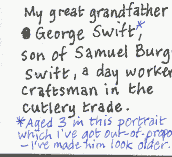 My great grandfather
George Swift*
son of Samuel Burg
Swift, a day worke
craftsman in the
cutlery trade.
*Aged 3 in this portrait
which I've got out-of-propo
- I've made him look older.